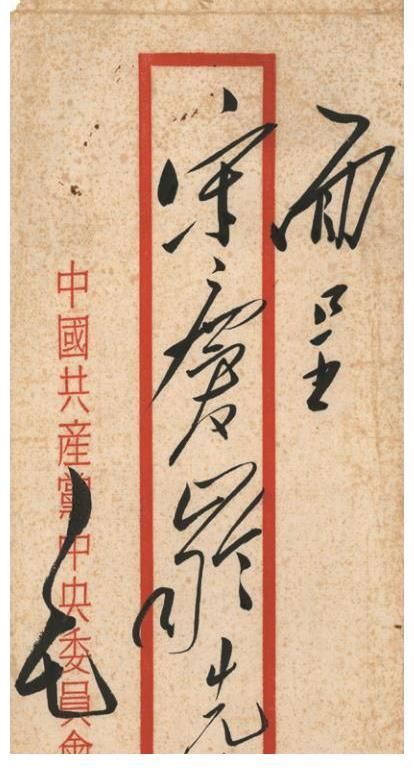 面呈
宋慶齡先
中國共産黨中央委員會
毛